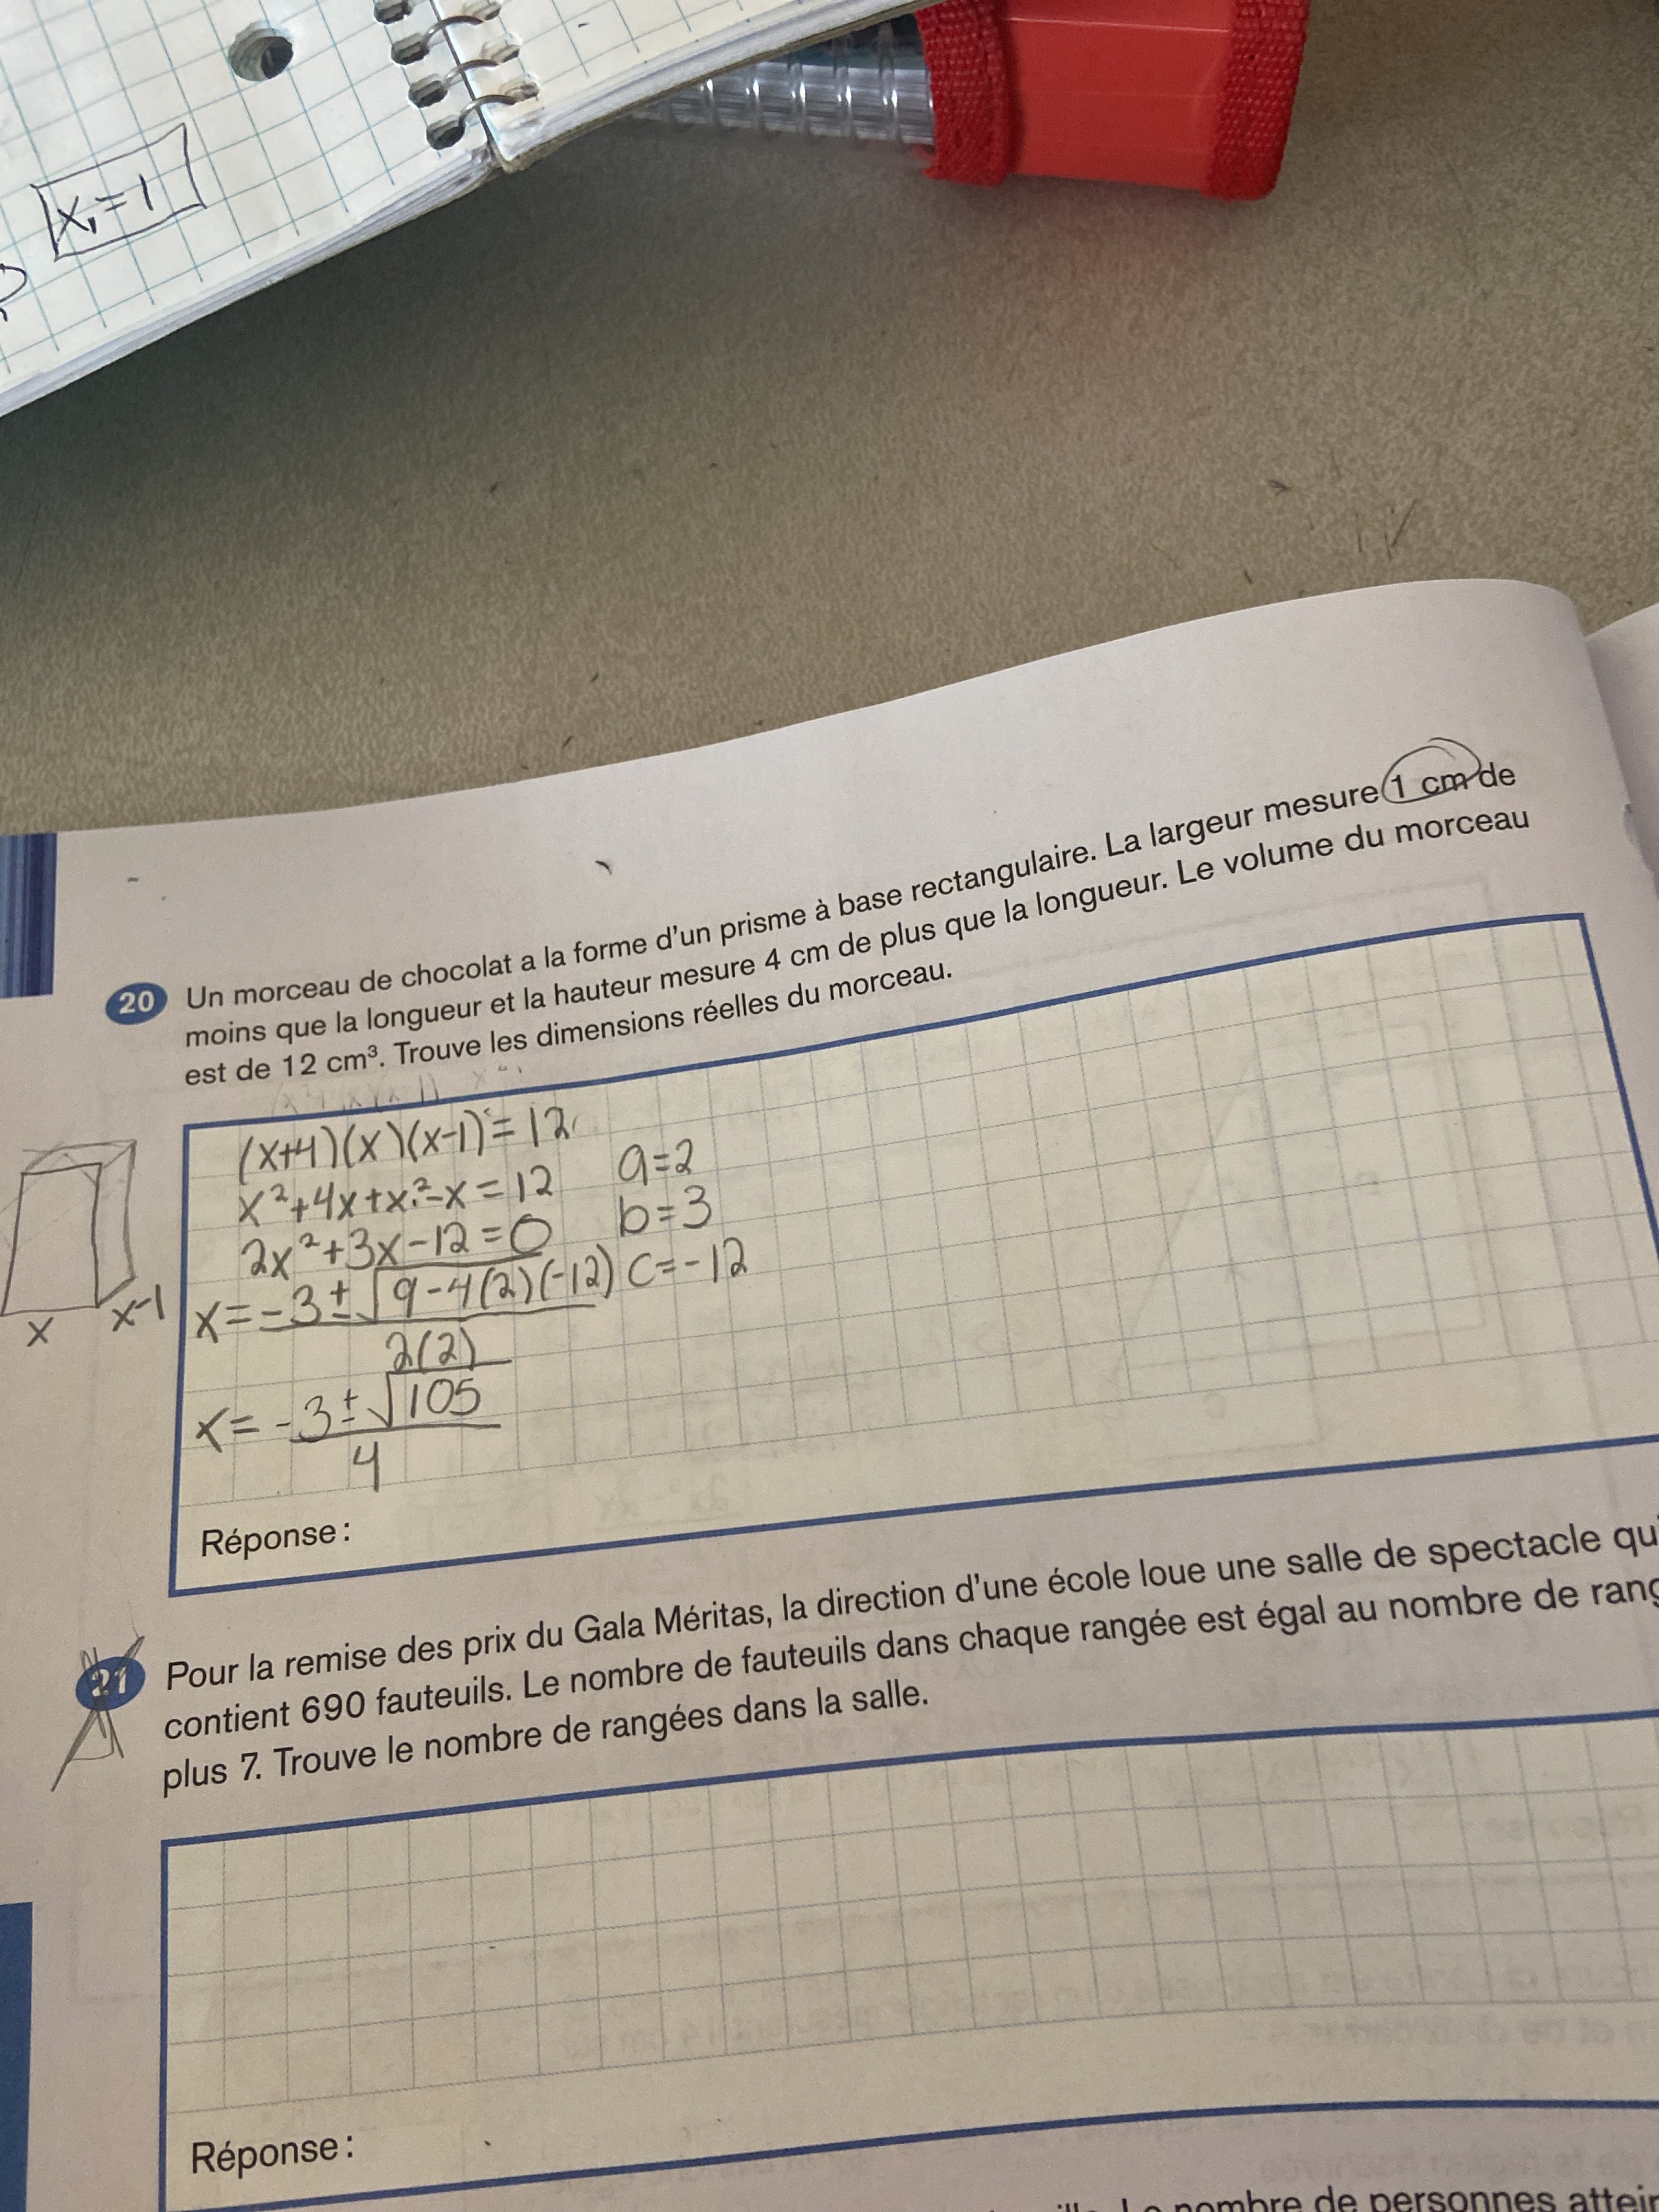 x₁=1
20 Un morceau de chocolat a la forme d'un prisme à base rectangulaire. La largeur mesure 1 cm de
moins que la longueur et la hauteur mesure 4 cm de plus que la longueur. Le volume du morceau
est de 12 cm³. Trouve les dimensions réelles du morceau.
(x+4)(x)(x-1)=12
x²+4x+x²-x=12
a=2
2x²+3x-12=0
b=3
x=-3±√9-4(2)(-12)
2(2)
c=-12
x=-3±√105
4
x
x-1
Réponse :
21 Pour la remise des prix du Gala Méritas, la direction d'une école loue une salle de spectacle qu
contient 690 fauteuils. Le nombre de fauteuils dans chaque rangée est égal au nombre de rang
plus 7. Trouve le nombre de rangées dans la salle.
Réponse :
nombre de personnes attei